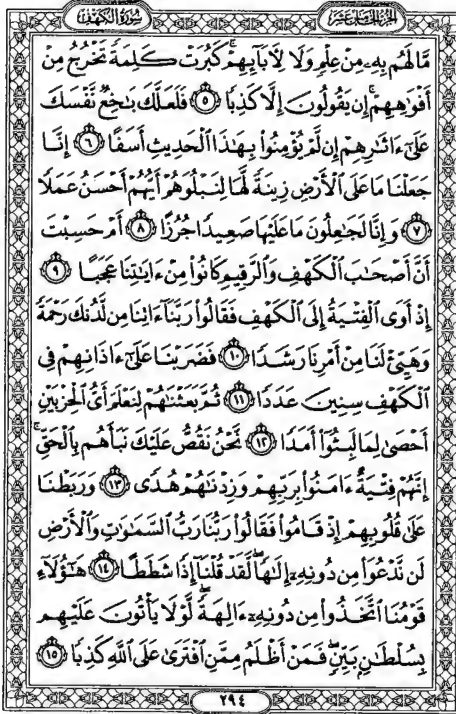 الجزء الخامس عشر سورة الكهف
مَّا لَهُم بِهِۦ مِنْ عِلْمٍ وَلَا لِأَبَآئِهِمْ ۚ كَبُرَتْ كَلِمَةً تَخْرُجُ مِنْ
أَفْوَٰهِهِمْ ۚ إِن يَقُولُونَ إِلَّا كَذِبًا ۝٥ فَلَعَلَّكَ بَٰخِعٌ نَّفْسَكَ
عَلَىٰٓ ءَاثَٰرِهِمْ إِن لَّمْ يُؤْمِنُوا۟ بِهَٰذَا ٱلْحَدِيثِ أَسَفًا ۝٦ إِنَّا
جَعَلْنَا مَا عَلَى ٱلْأَرْضِ زِينَةً لَّهَا لِنَبْلُوَهُمْ أَيُّهُمْ أَحْسَنُ عَمَلًا
۝٧ وَإِنَّا لَجَٰعِلُونَ مَا عَلَيْهَا صَعِيدًا جُرُزًا ۝٨ أَمْ حَسِبْتَ
أَنَّ أَصْحَٰبَ ٱلْكَهْفِ وَٱلرَّقِيمِ كَانُوا۟ مِنْ ءَايَٰتِنَا عَجَبًا ۝٩
إِذْ أَوَى ٱلْفِتْيَةُ إِلَى ٱلْكَهْفِ فَقَالُوا۟ رَبَّنَآ ءَاتِنَا مِن لَّدُنكَ رَحْمَةً
وَهَيِّئْ لَنَا مِنْ أَمْرِنَا رَشَدًا ۝١٠ فَضَرَبْنَا عَلَىٰٓ ءَاذَانِهِمْ فِى
ٱلْكَهْفِ سِنِينَ عَدَدًا ۝١١ ثُمَّ بَعَثْنَٰهُمْ لِنَعْلَمَ أَىُّ ٱلْحِزْبَيْنِ
أَحْصَىٰ لِمَا لَبِثُوٓا۟ أَمَدًا ۝١٢ نَّحْنُ نَقُصُّ عَلَيْكَ نَبَأَهُم بِٱلْحَقِّ ۚ
إِنَّهُمْ فِتْيَةٌ ءَامَنُوا۟ بِرَبِّهِمْ وَزِدْنَٰهُمْ هُدًى ۝١٣ وَرَبَطْنَا
عَلَىٰ قُلُوبِهِمْ إِذْ قَامُوا۟ فَقَالُوا۟ رَبُّنَا رَبُّ ٱلسَّمَٰوَٰتِ وَٱلْأَرْضِ
لَن نَّدْعُوَا۟ مِن دُونِهِۦٓ إِلَٰهًا ۖ لَّقَدْ قُلْنَآ إِذًا شَطَطًا ۝١٤ هَٰٓؤُلَآءِ
قَوْمُنَا ٱتَّخَذُوا۟ مِن دُونِهِۦٓ ءَالِهَةً ۖ لَّوْلَا يَأْتُونَ عَلَيْهِم
بِسُلْطَٰنٍۭ بَيِّنٍ ۖ فَمَنْ أَظْلَمُ مِمَّنِ ٱفْتَرَىٰ عَلَى ٱللَّهِ كَذِبًا ۝١٥
٢٩٤